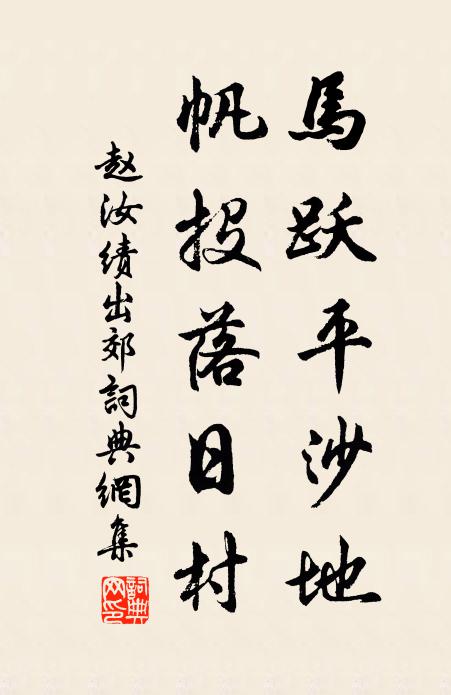 馬跃平沙地
帆投落日村
赵汝績出郊詞典網集
詞典网印